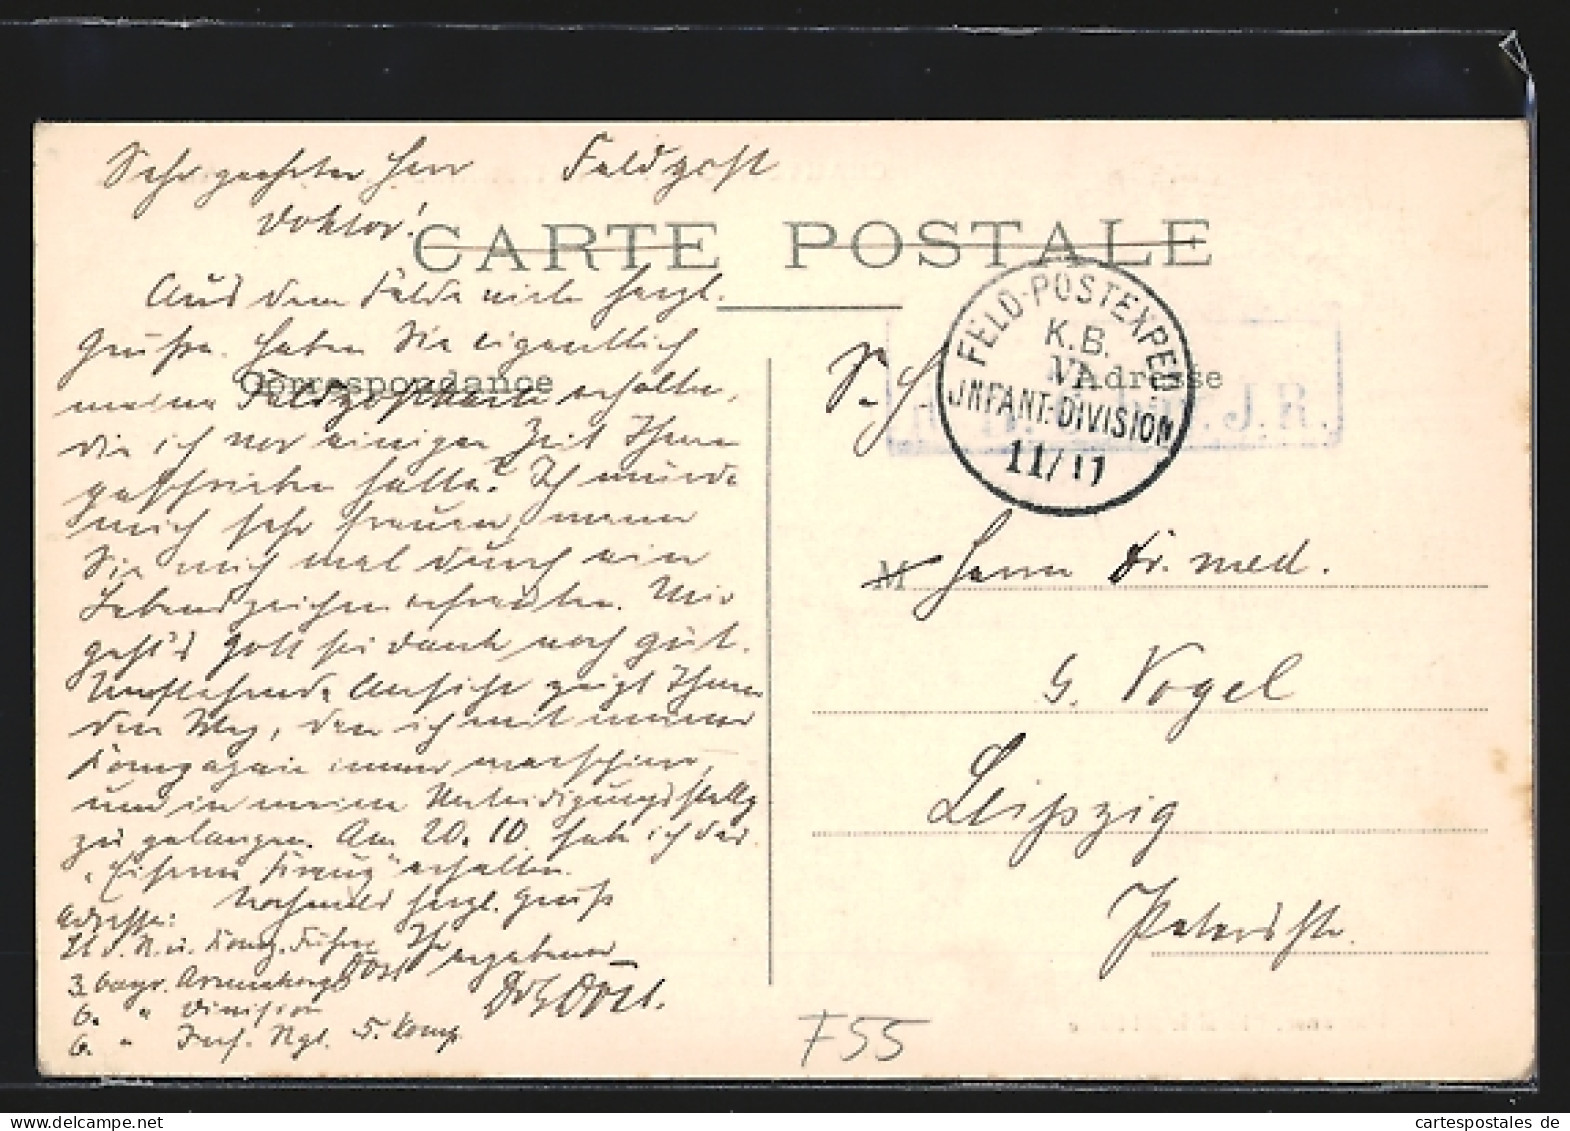 Sehr geehrter Herr
Doktor!
Feldpost
CARTE POSTALE
Aus dem Felde viele herzl.
Grüße. Haben Sie eigentlich
Correspondance
meine Feldpostkarte erhalten,
die ich vor einiger Zeit Ihnen
geschrieben hatte? Ich würde
mich sehr freuen, wenn
Sie mich mal durch ein
Lebenszeichen erfreuten. Mir
geht's Gott sei dank noch gut.
Umstehende Ansicht zeigt Ihnen
den Weg, den ich mit meiner
Kompagnie immer marschiere,
um in meine Verteidigungsstellg
zu gelangen. Am 20. 10. hab ich das
"Eiserne Kreuz" erhalten.
Nochmals herzl. Gruß
Ihr ergebener
Döst.
Adresse:
Lt. d. R. u. Komp. Führer Döst
3. bayr. Armeekorps
6. " Division
6. " Inf. Rgt. 5. Komp.
FELD-POSTEXPED.
K.B.
VI.
INFANT.-DIVISION
11/11
J.R.
Adresse
S. B.
M Herrn Dr. med.
G. Vogel
Leipzig
Petersstr.
F55
cartespostales de